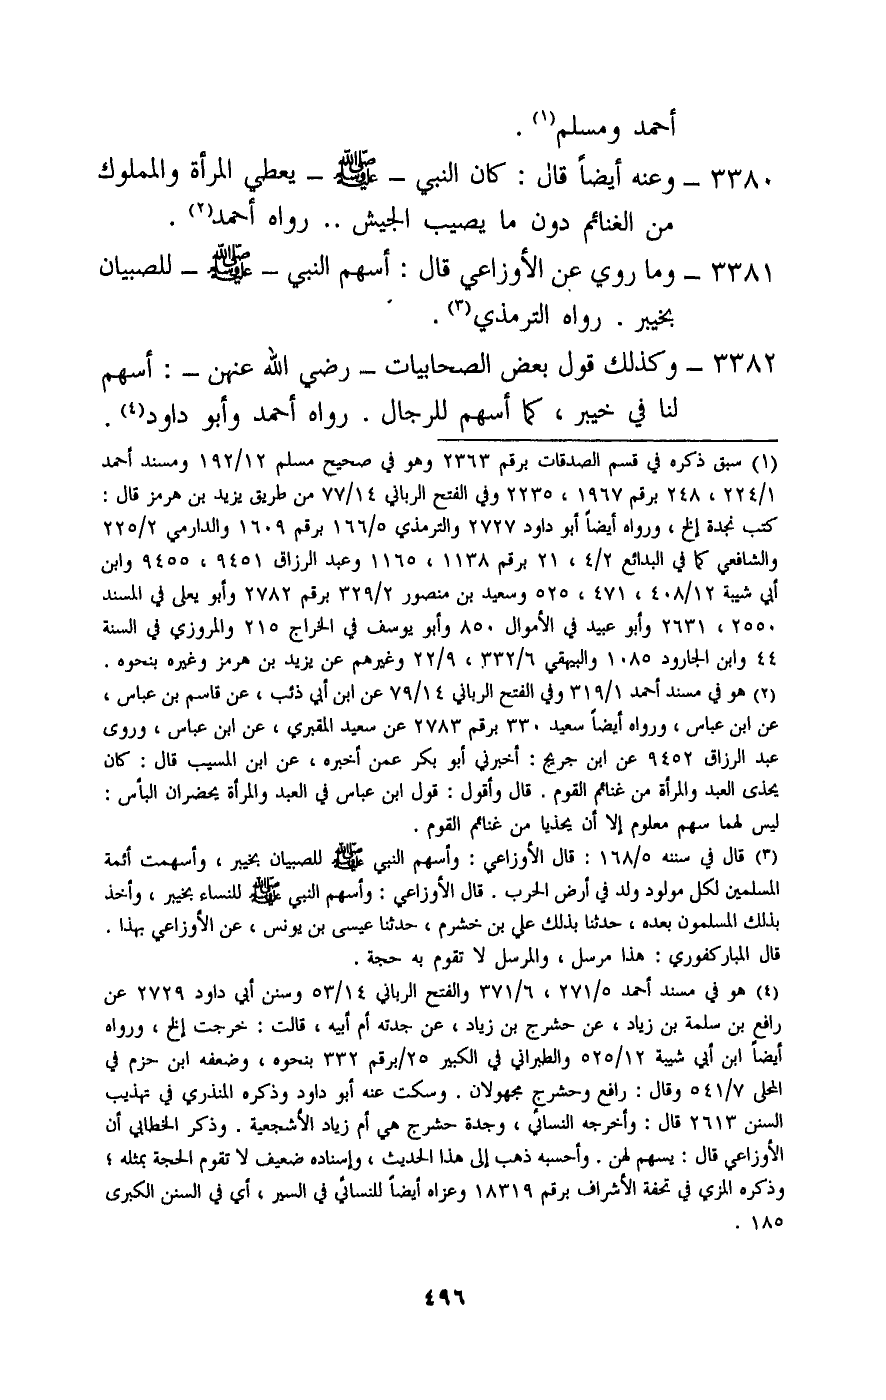 أحمد ومسلم(١) .
٣٣٨٠ – وعنه أيضاً قال : كان النبي – ﷺ – يعطي المرأة والمملوك
من الغنائم دون ما يصيب الجيش .. رواه أحمد(٢) .
٣٣٨١ – وما روي عن الأوزاعي قال : أسهم النبي – ﷺ – للصبيان
بخيبر . رواه الترمذي(٣) .
٣٣٨٢ – وكذلك قول بعض الصحابيات – رضي الله عنهن – : أسهم
لنا في خيبر ، كما أسهم للرجال . رواه أحمد وأبو داود(٤) .
(١) سبق ذكره في قسم الصدقات برقم ٢٣٦٣ وهو في صحيح مسلم ١٩٢/١٢ ومسند أحمد
٢٢٤/١ ، ٢٤٨ برقم ١٩٦٧ ، ٢٢٣٥ وفي الفتح الرباني ٧٧/١٤ من طريق يزيد بن هرمز قال :
كتب نجدة إلخ ، ورواه أيضاً أبو داود ٢٧٢٧ والترمذي ١٦٦/٥ برقم ١٦٠٩ والدارمي ٢٢٥/٢
والشافعي كما في البدائع ٤/٢ ، ٢١ برقم ١١٣٨ ، ١١٦٥ وعبد الرزاق ٩٤٥١ ، ٩٤٥٥ وابن
أبي شيبة ٤٠٨/١٢ ، ٤٧١ ، ٥٢٥ وسعيد بن منصور ٣٢٩/٢ برقم ٢٧٨٢ وأبو يعلى في المسند
٢٥٥٠ ، ٢٦٣١ وأبو عبيد في الأموال ٨٥٠ وأبو يوسف في الخراج ٢١٥ والمروزي في السنة
٤٤ وابن الجارود ١٠٨٥ والبيهقي ٣٣٢/٦ ، ٢٢/٩ وغيرهم عن يزيد بن هرمز وغيره بنحوه .
(٢) هو في مسند أحمد ٣١٩/١ وفي الفتح الرباني ٧٩/١٤ عن ابن أبي ذئب ، عن قاسم بن عباس ،
عن ابن عباس ، ورواه أيضاً سعيد ٣٣٠ برقم ٢٧٨٣ عن سعيد المقبري ، عن ابن عباس ، وروى
عبد الرزاق ٩٤٥٢ عن ابن جريج : أخبرني أبو بكر عمن أخبره ، عن ابن المسيب قال : كان
يحذى العبد والمرأة من غنائم القوم . قال وأقول : قول ابن عباس في العبد والمرأة يحضران البأس :
ليس لهما سهم معلوم إلا أن يحذيا من غنائم القوم .
(٣) قال في سننه ١٦٨/٥ : قال الأوزاعي : وأسهم النبي ﷺ للصبيان بخيبر ، وأسهمت أئمة
المسلمين لكل مولود ولد في أرض الحرب . قال الأوزاعي : وأسهم النبي ﷺ للنساء بخيبر ، وأخذ
بذلك المسلمون بعده ، حدثنا بذلك علي بن خشرم ، حدثنا عيسى بن يونس ، عن الأوزاعي بهذا .
قال المباركفوري : هذا مرسل ، والمرسل لا تقوم به حجة .
(٤) هو في مسند أحمد ٢٧١/٥ ، ٣٧١/٦ والفتح الرباني ٥٣/١٤ وسنن أبي داود ٢٧٢٩ عن
رافع بن سلمة بن زياد ، عن حشرج بن زياد ، عن جدته أم أبيه ، قالت : خرجت إلخ ، ورواه
أيضاً ابن أبي شيبة ٥٢٥/١٢ والطبراني في الكبير ٢٥/برقم ٣٣٢ بنحوه ، وضعفه ابن حزم في
المحلى ٥٤١/٧ وقال : رافع وحشرج مجهولان . وسكت عنه أبو داود وذكره المنذري في تهذيب
السنن ٢٦١٣ قال : وأخرجه النسائي ، وجدة حشرج هي أم زياد الأشجعية . وذكر الخطابي أن
الأوزاعي قال : يسهم لهن . وأحسبه ذهب إلى هذا الحديث ، وإسناده ضعيف لا تقوم الحجة بمثله ؛
وذكره المزي في تحفة الأشراف برقم ١٨٣١٩ وعزاه أيضاً للنسائي في السير ، أي في السنن الكبرى
١٨٥ .
٤٩٦